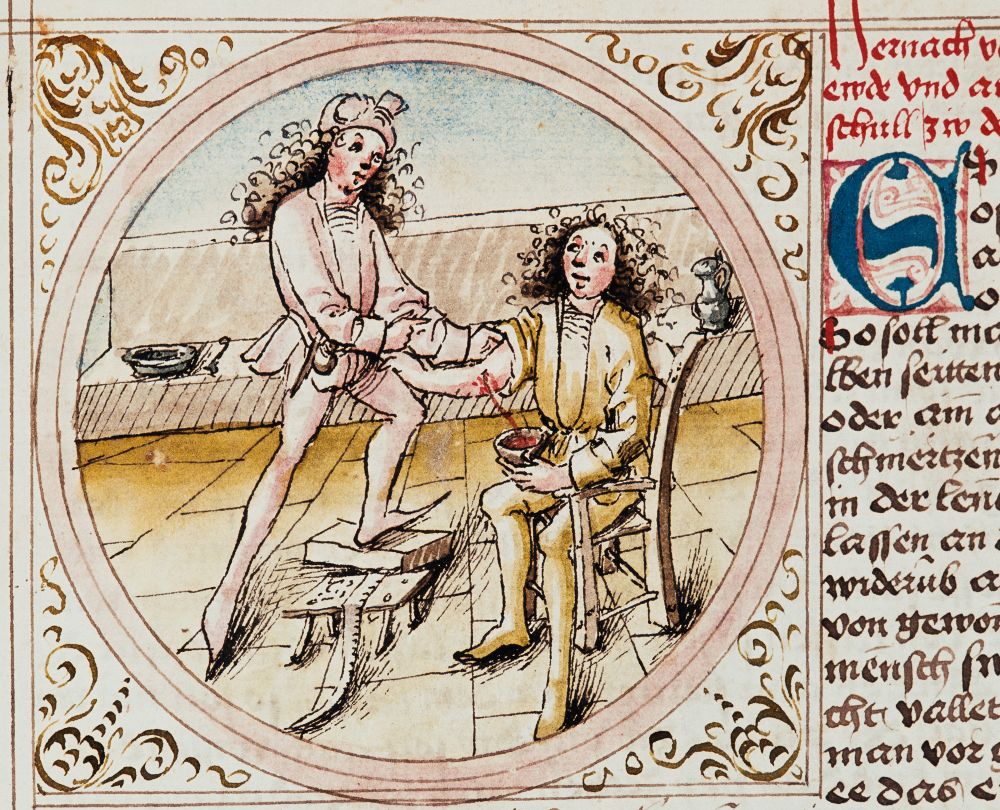 Hernach v
ende vnd
schull ziv d
S
So soll ma
lben seitten
oder am a
schmertzen
in der len
lassen an
widerub a
von gewon
mensch sin
cht vallet
man vor g
ee das e